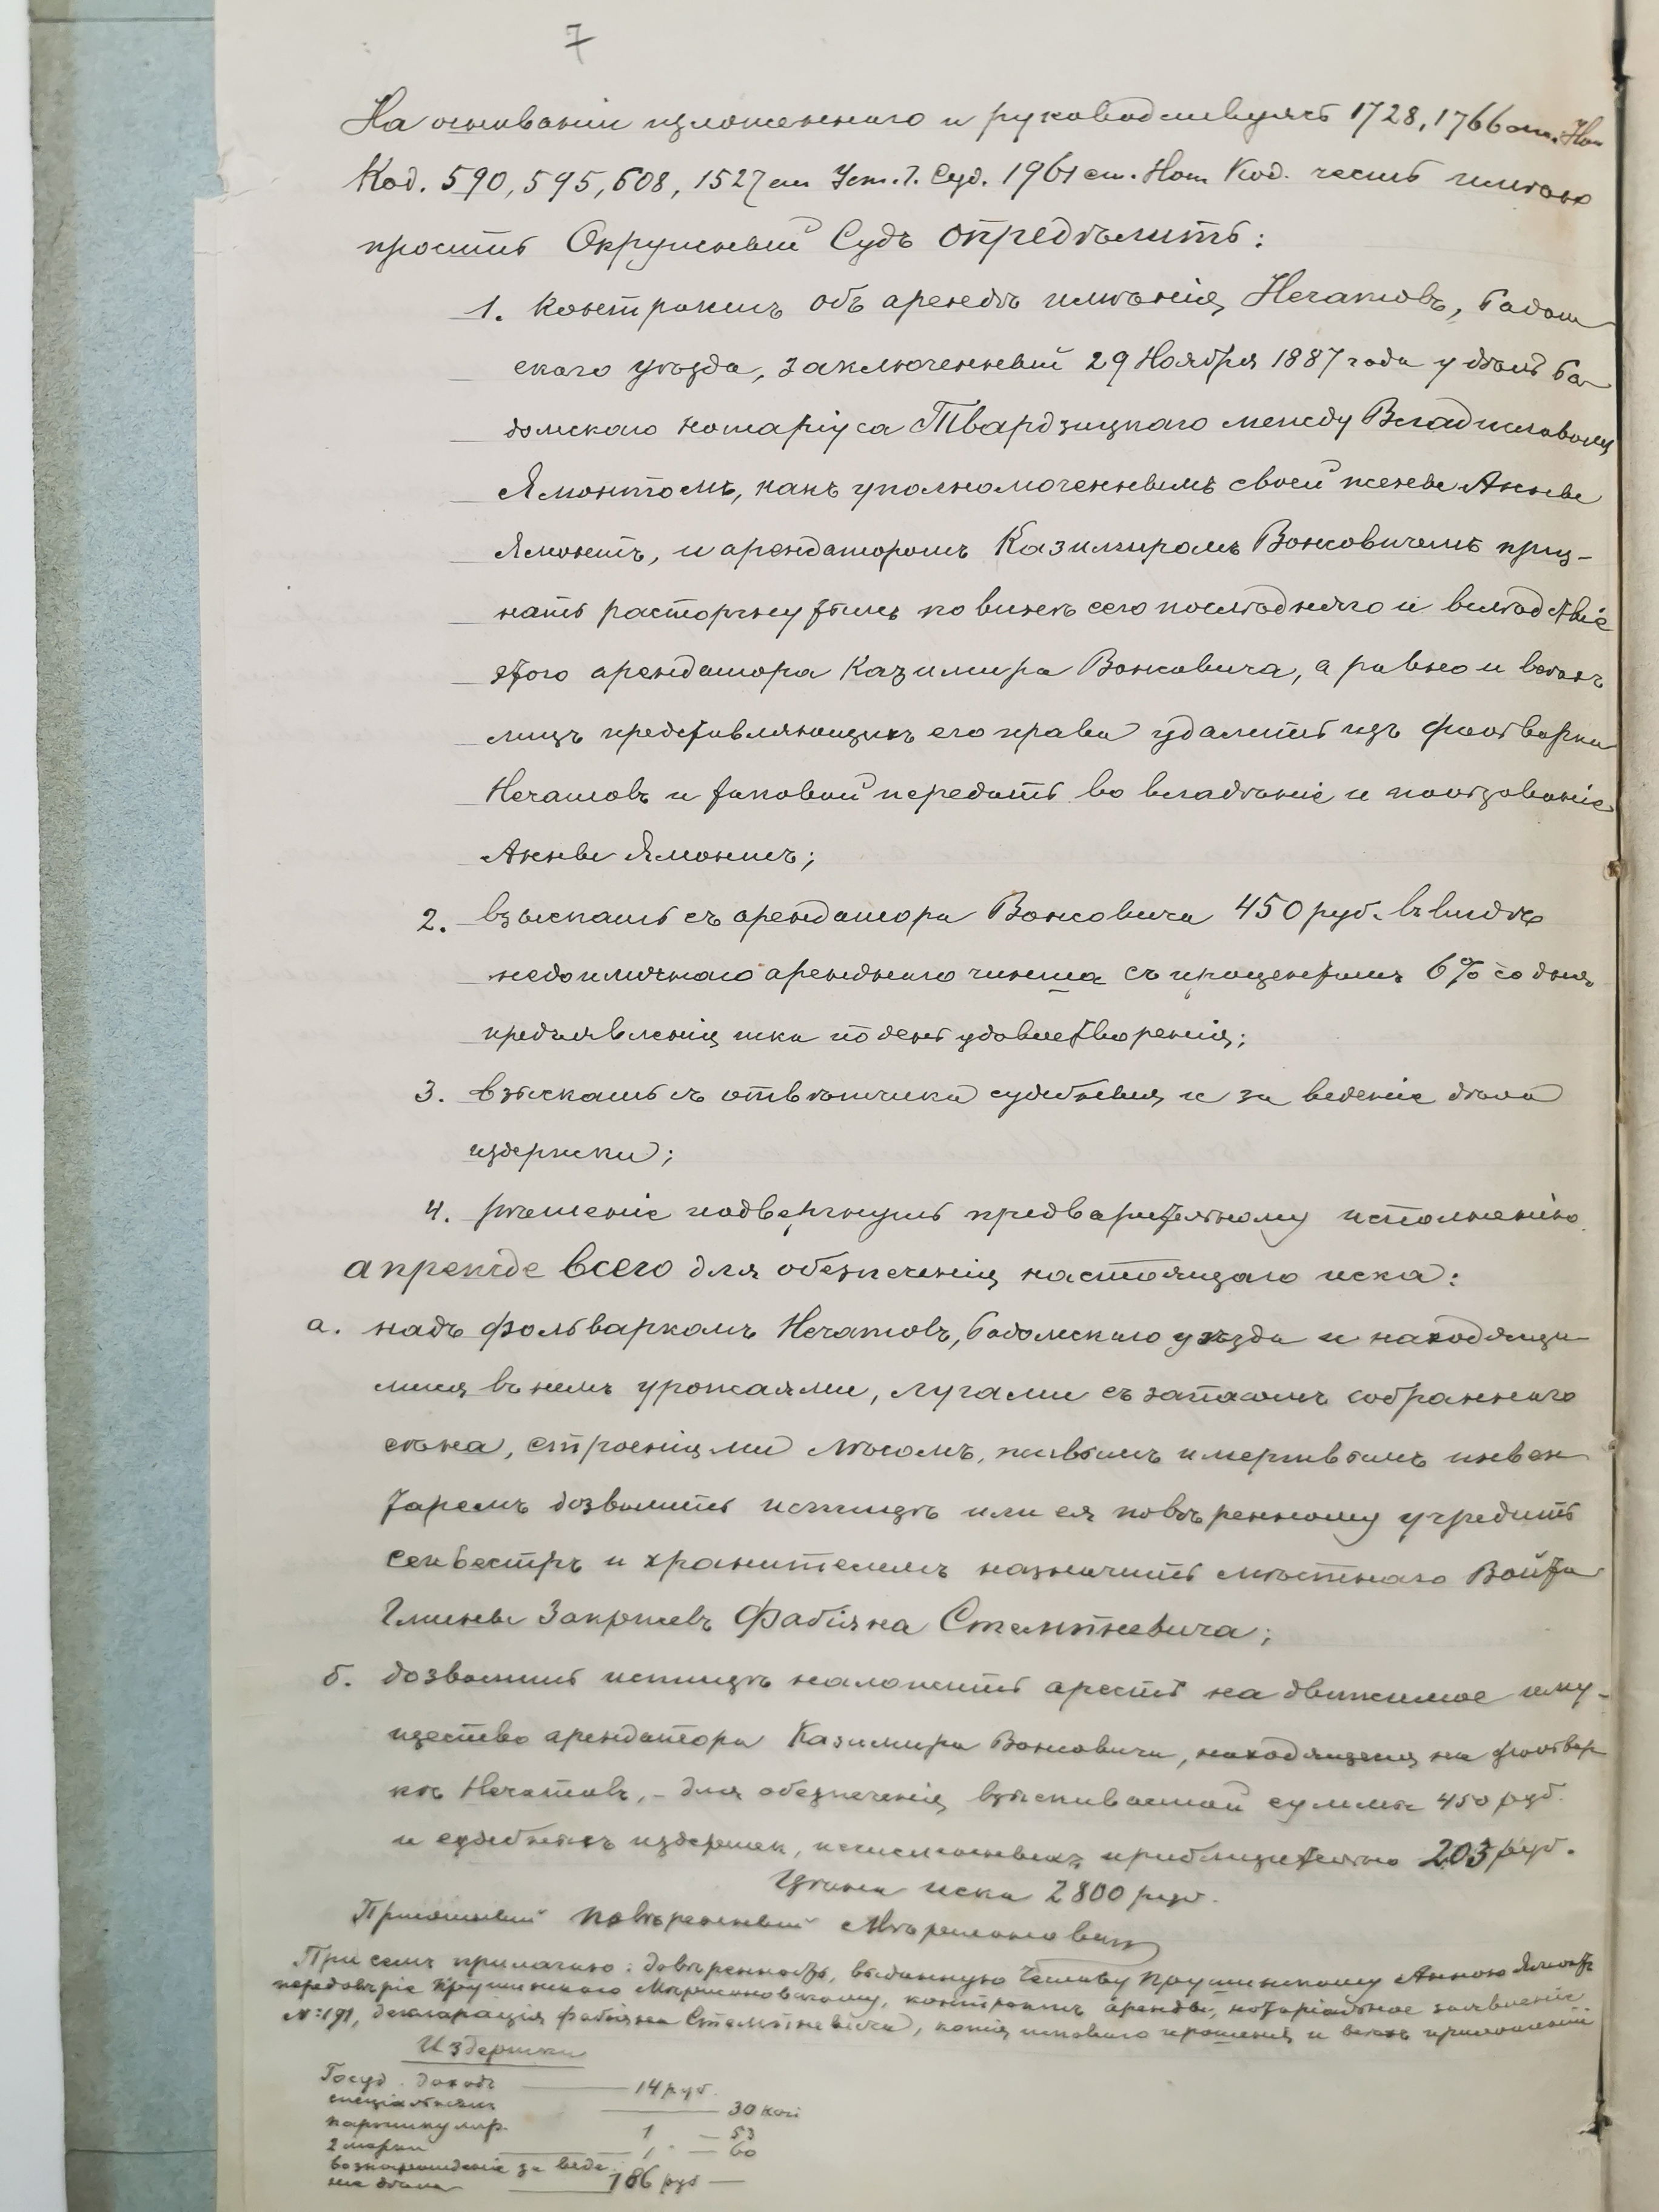 7
На основаніи изложеннаго и руководствуясь 1728, 1766 ст. Нап
Код. 590, 595, 608, 1527 ст Уст. Г. Суд. 1961 ст. Нап Код. честь имѣю
просить Окружный Судъ опредѣлить:
1. Контрактъ объ арендѣ имѣнія Нечатовъ, Радом
скаго уѣзда, заключенный 29 Ноября 1887 года у Ра
домскаго нотаріуса Твардзицкаго между Владиславомъ
Ямонтомъ, какъ уполномоченнымъ своей жены Анны
Ямонтъ, и арендаторомъ Казимиромъ Вонсовичемъ приз-
нать расторгнутымъ по винѣ сего послѣдняго и вслѣдствіе
этого арендатора Казимира Вонсовича, а равно и всѣхъ
лицъ представляющихъ его права удалить изъ фольварка
Нечатовъ и таковой передать во владѣніе и пользованіе
Анны Ямонтъ;
2. взыскать съ арендатора Вонсовича 450 руб. въ видѣ
недоимочнаго аренднаго чинша съ процентами 6% со дня
предъявленія иска по день удовлетворенія;
3. взыскать съ отвѣтчика судебныя и за веденіе дѣла
издержки;
4. рѣшеніе подвергнуть предварительному исполненію
а прежде всего для обезпеченія настоящаго иска:
а. надъ фольваркомъ Нечатовъ, Радомскаго уѣзда и находящи
мися въ немъ урожаями, лугами съ запасомъ собраннаго
сѣна, строеніями лѣсомъ, живымъ и мертвымъ инвен
таремъ дозволить истицѣ или ея повѣренному учредить
секвестръ и хранителемъ назначить мѣстнаго Войта
Гмины Закржевъ Фабіяна Стемпневича;
б. дозволить истицѣ наложить арестъ на движимое иму-
щество арендатора Казимира Вонсовича, находящееся на фольвар
кѣ Нечатовъ, - для обезпеченія взыскиваемой суммы 450 руб.
и судебныхъ издержек, исчисленныхъ приблизительно 203 руб.
Цѣна иска 2800 руб.
Присяжный повѣренный
При семъ прилагаю: довѣренность, выданную Чеславу Крушинскому Анною Ямонтъ
передовѣріе Крушинскаго, контрактъ аренды, нотаріальное заявленіе
№ 191, декларація Фабіяна Стемпневича, копія исковаго прошенія и всѣхъ приложеній
Издержки
Госуд. доходъ 14 руб.
спеціальныхъ 30 коп
партикуляр. 1 — 53
2 марки 1 — 60
вознагражденіе за веде
ніе дѣла 186 руб —